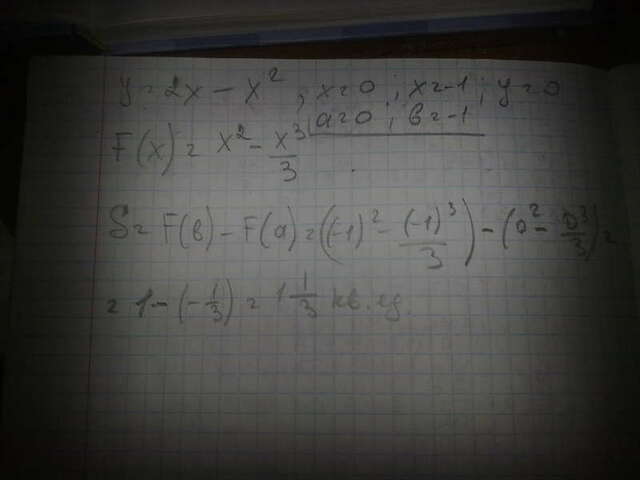 y = 2x - x², x=0; x=-1; y=0
a=0; b=-1
F(x) = x² - x³/3
S = F(b) - F(a) = ((-1)² - (-1)³/3) - (0² - 0³/3) =
= 1 - (-1/3) = 1 1/3 кв. ед.